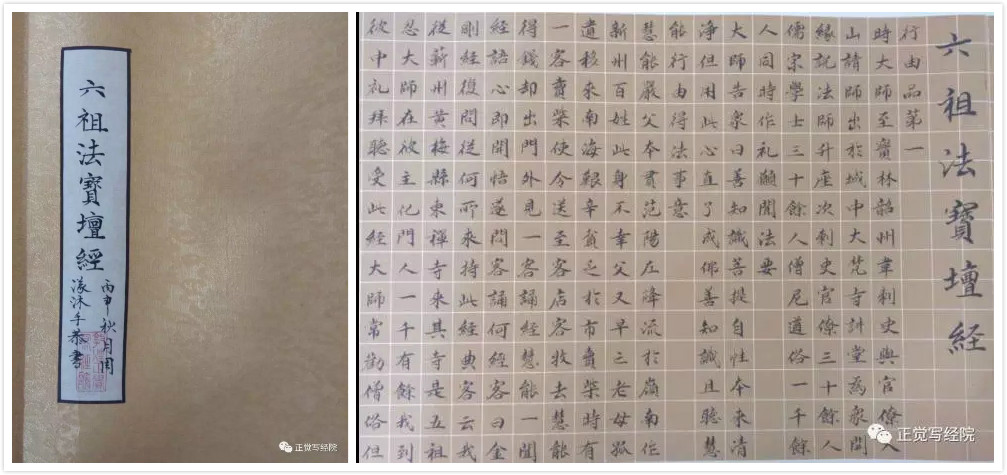 六祖法寶壇經
丙申秋月閏
沐手恭書
正觉写经院
六祖法寶壇経
行由品第一
時大師至寳林韶州韋刺史與官僚入
山請師出於城中大梵寺講堂為衆開
緣說法師升座次刺史官僚三十餘人
儒宗學士三十餘人僧尼道俗一千餘
人同時作礼願聞法要
大師告衆曰善知識菩提自性本来清
淨但用此心直了成佛善知識且聽慧
能行由得法事意
慧能嚴父本貫范陽左降流於嶺南作
新州百姓此身不幸父又早亡老母孤
遺移來南海艱辛貧乏於市賣柴時有
一客賣柴使令送至客店客收去慧能
得錢却出門外見一客誦經慧能一聞
經語心即開悟遂問客誦何經客曰金
剛經復問從何所來持此經典客云我
從蘄州黃梅縣東禪寺来其寺是五祖
忍大師在彼主化門人一千有餘我到
彼中礼拜聽受此經大師常勸僧俗但
正觉写经院